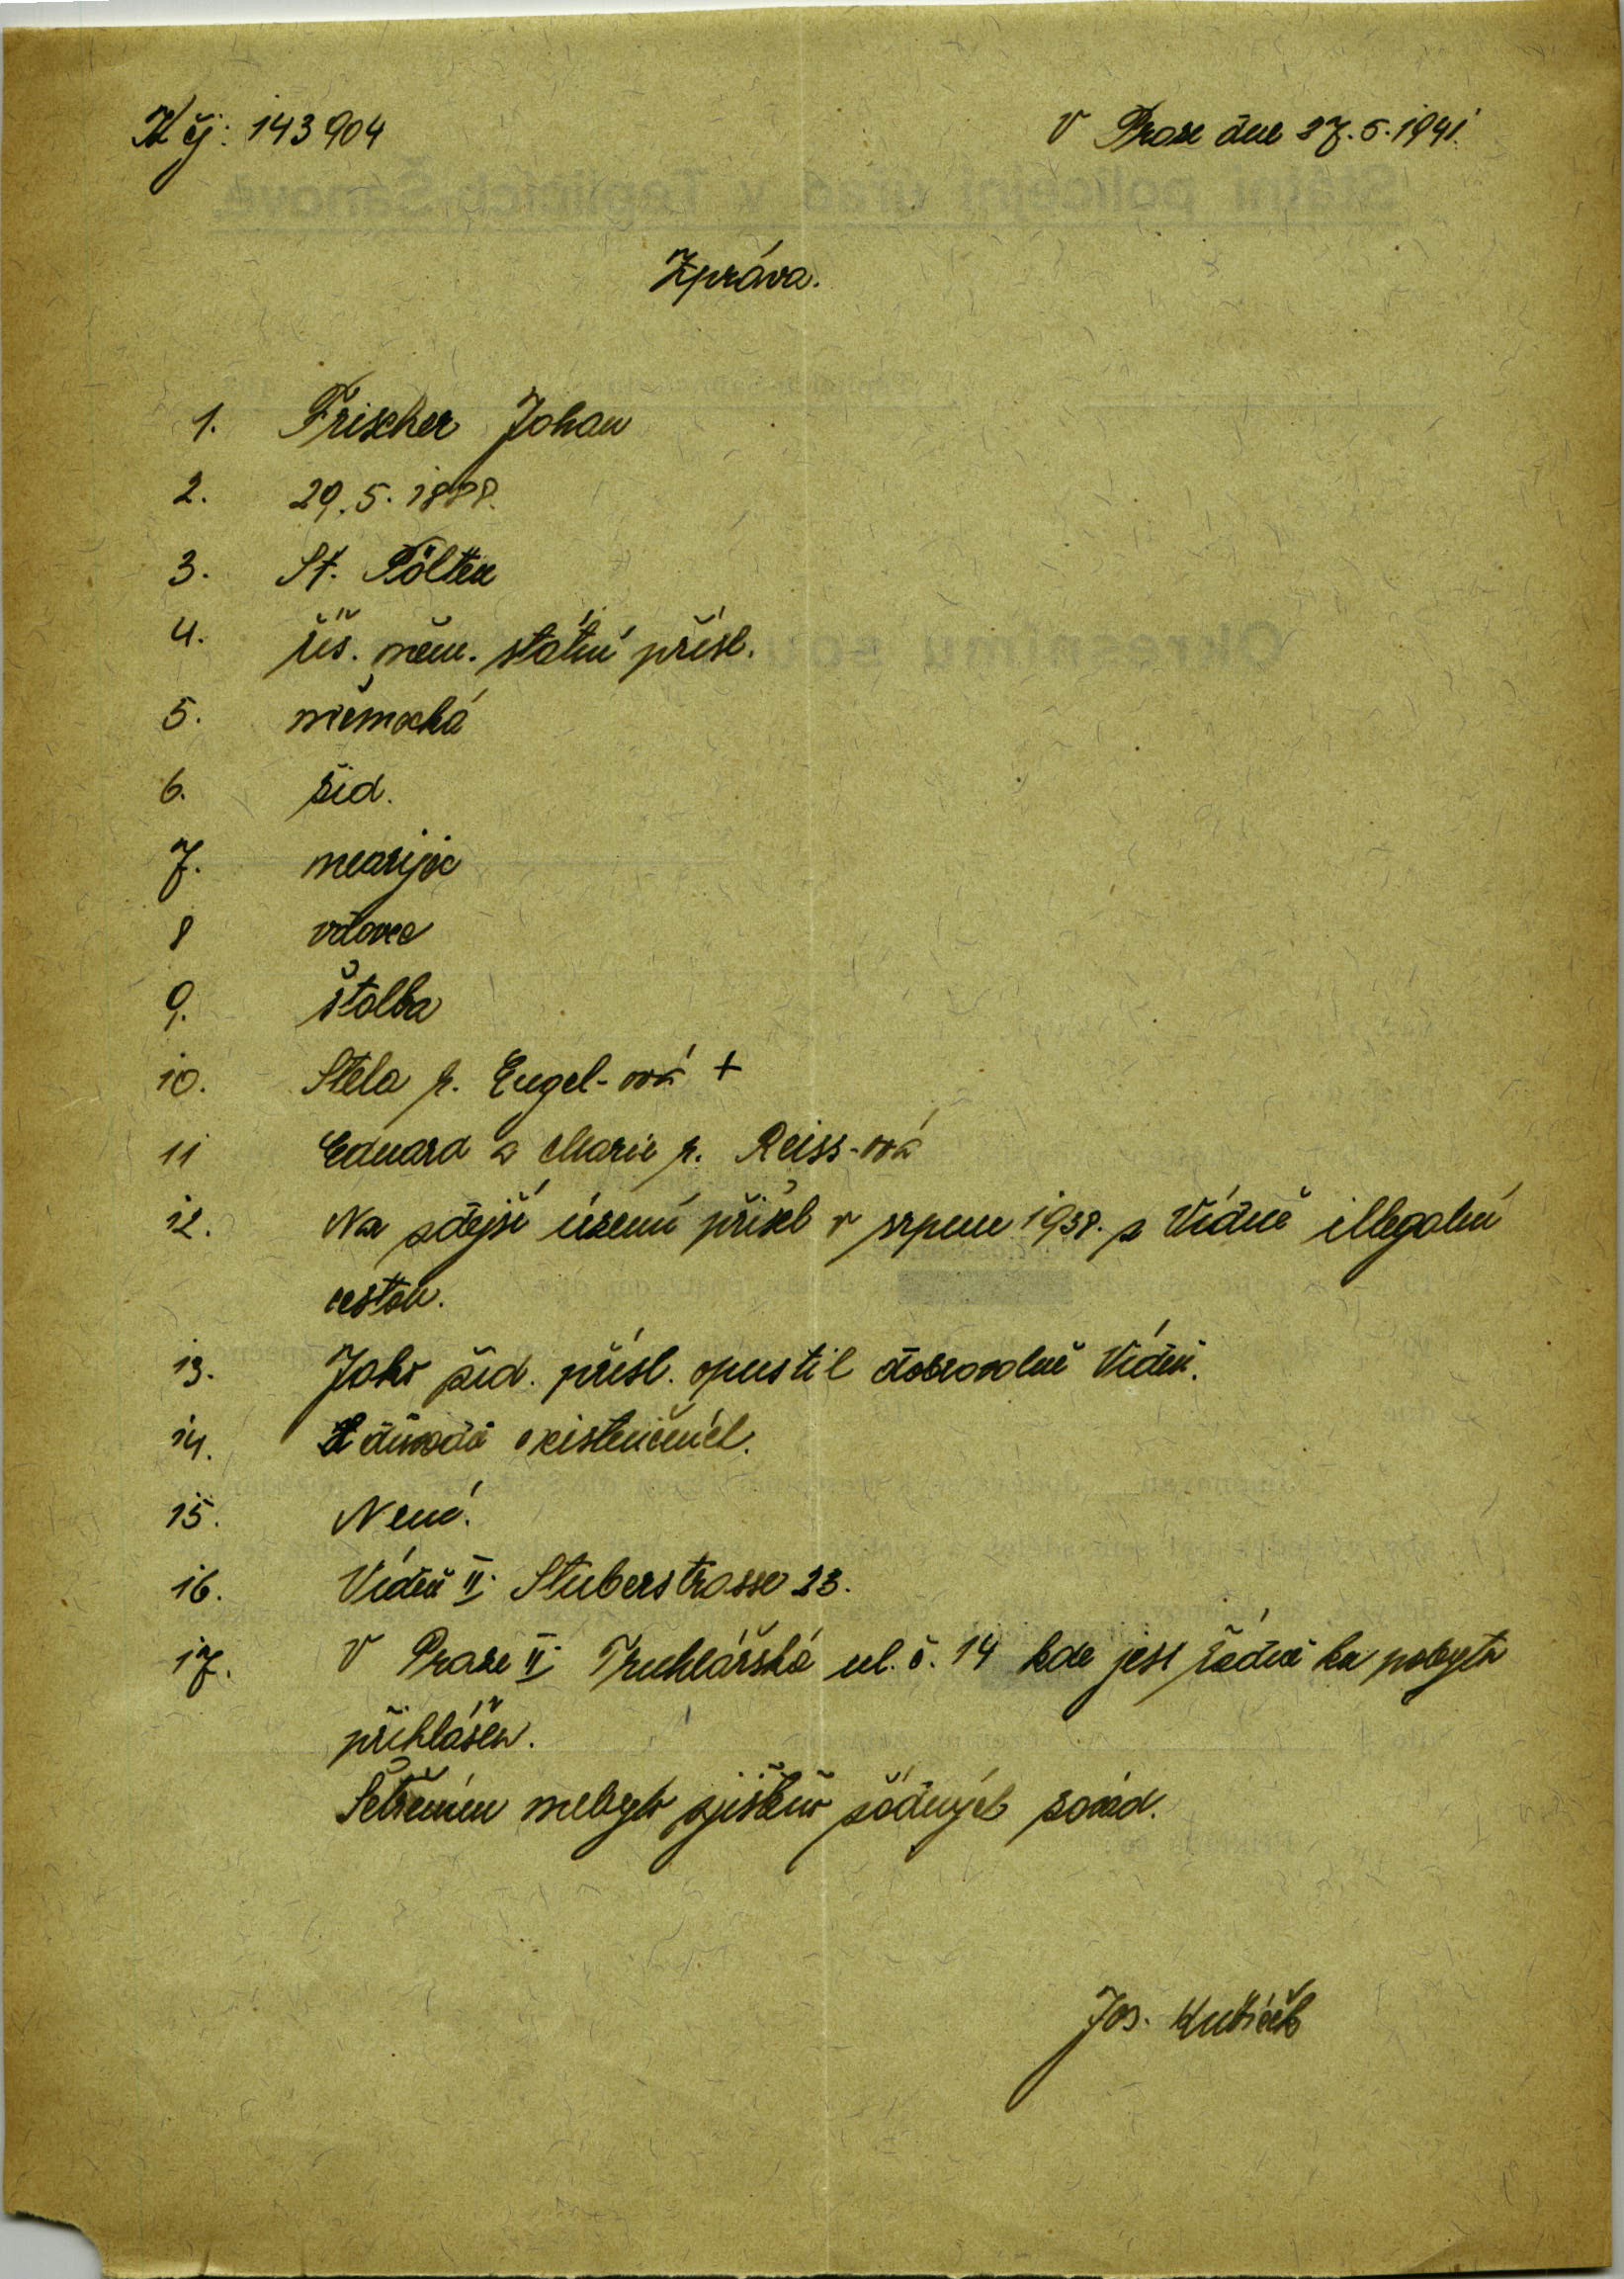 K čj: 143904
V Praze dne 27.5.1941.
Státní policejní úřad v Teplicích-Šanově.
Zpráva.
1. Frischer Johan
2. 29.5.1888.
3. St. Pölten
4. říš. něm. státní přísl.
5. německá
6. žid.
7. nearijec
8 vdovec
9. štolba
10. Stela r. Engel-ová +
11 Eduard a Marie r. Reiss-ová
12. Na zdejší území přišel v srpnu 1938. z Vídně illegalní
cestou.
13. Jako žid. přísl. opustil dobrovolně Vídeň.
14. Z důvodů existenčních.
15. Nemá.
16. Vídeň II. Stuberstrasse 23.
17. V Praze II. Truhlářská ul. č. 14 kde jest řádně ku pobytu
přihlášen.
Šetřením nebylo zjištěno žádných závad.
Jos.